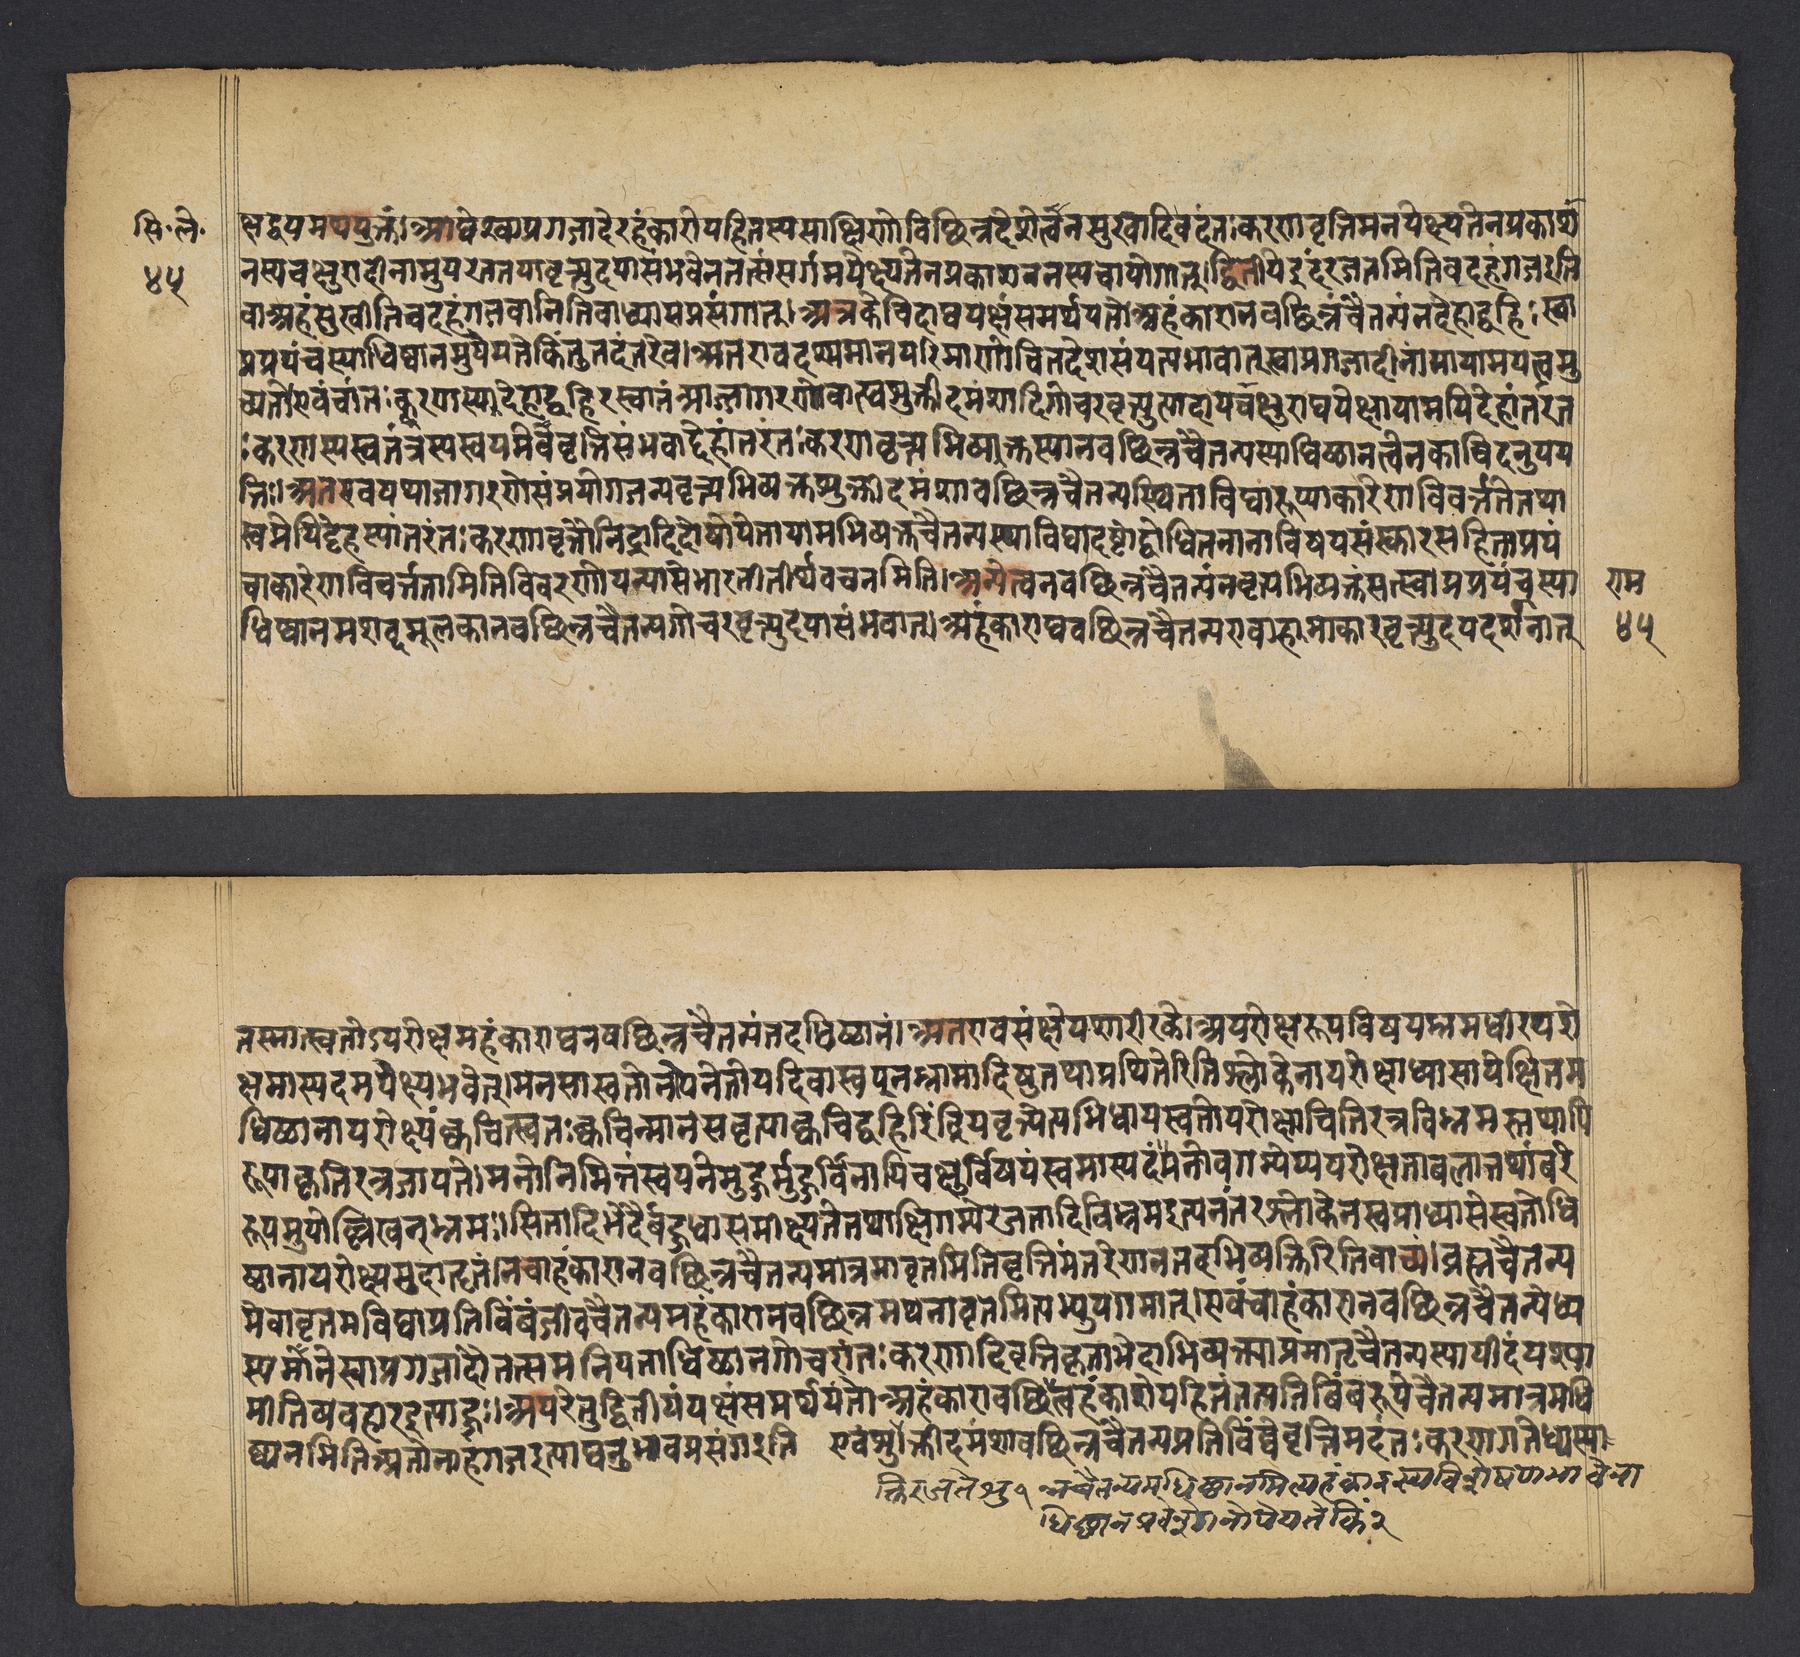 सि॰ले॰
४५
क्षद्वयमप्ययुक्तं।आद्येस्वाप्नगजादेरहंकारोपहितस्यसाक्षिणोविछिन्नदेशत्वेनसुखादिवदंतःकरणवृत्तिमनपेक्ष्यतेनप्रकाशं
नस्यचक्षुरादीनामुपरततयावृत्त्युदयासंभवेनतत्संसर्गमपेक्ष्यतेनप्रकाशनस्यचायोगात्।द्वितीयेइदंरजतमितिवदहंगजःति
वाअहंसुखीतिवदहंगजवानितिवाध्यासप्रसंगात्।अत्रकेचिदाद्यपक्षंसमर्थयंते।अहंकारानवछिन्नंचैतन्यंनदेहाद्बहिःस्वा
प्नप्रपंचस्याधिष्ठानमुपेयतेकिंतुतदंतरेव।अतएवदृश्यमानपरिमाणोचितदेशसंपत्यभावात्स्वाप्नगजादीनांमायामयत्वमु
च्यते।एवंचांतःकरणस्यदेहाद्बहिरस्वातंत्र्याज्जागरणेबाह्यशुक्तीदमंशादिगोचरवृत्त्युत्पादायचक्षुराद्यपेक्षायामपिदेहांतरंत
ःकरणस्यस्वतंत्रस्यस्वयमेववृत्तिसंभवाद्देहांतरंतःकरणवृत्त्यभिव्यक्तस्यानवछिन्नचैतन्यस्याधिष्ठानत्वेनकाचिदनुपप
त्तिः।अतएवयथाजागरणेसंप्रयोगजन्यवृत्त्यभिव्यक्तशुक्तीदमंशावछिन्नचैतन्यस्थिताविद्यारूप्याकारेणविवर्त्ततेतथा
स्वप्नेपिदेहस्यांतरंतःकरणवृत्तौनिद्रादिदोषोपेतायामभिव्यक्तचैतन्यस्थाविद्यादृष्टोद्बोधितनानाविषयसंस्कारसहिताप्रपं
चाकारेणविवर्त्ततामितिविवरणोपन्यासेभारतीतीर्थवचनमिति।अन्येत्वनवछिन्नचैतन्यंनवृत्यभिव्यक्तंसत्स्वाप्नप्रपंचस्या
धिष्ठानमशब्दमूलकानवछिन्नचैतन्यगोचरवृत्त्युदयासंभवात्।अहंकाराद्यवछिन्नचैतन्यएवाहमाकारवृत्त्युदयदर्शनात्
राम
४५
तस्मात्स्वतोऽपरोक्षमहंकाराद्यनवछिन्नचैतन्यंतदधिष्ठानं।अतएवसंक्षेपशारीरके।अपरोक्षरूपविषयभ्रमधीरपरो
क्षमास्पदमपेक्ष्यभवेत्।मनसास्वतोनयनतोयदिवास्वपनभ्रमादिषुतथाप्रथितेरितिश्लोकेनापरोक्षाध्यासापेक्षितम
धिष्ठानापरोक्ष्यंक्वचित्स्वतःक्वचिन्मानसवृत्याक्वचिद्बहिरिंद्रियवृत्त्येत्यभिधायस्वतोपरोक्षाचितिरत्रविभ्रमस्तथापि
रूपाकृतिरत्रजायते।मनोनिमित्तंस्वपनेमुहुर्मुहुर्विनापिचक्षुर्विषयंस्वमास्पदंमनोवगम्येप्यपरोक्षताबलात्तथांबरे
रूपमुपोल्लिखन्भ्रमः।सितादिभेदैर्बहुधासमीक्ष्यतेतथाक्षिगम्येरजतादिविभ्रमइत्यनंतरश्लोकेनस्वप्नाध्यासेस्वतोधि
ष्ठानापरोक्ष्यमुदाहृतं।नचाहंकारानवछिन्नचैतन्यमात्रमावृतमितिवृत्तिमंतरेणनतदभिव्यक्तिरितिवाच्यं।ब्रह्मचैतन्य
मेवावृतमविद्याप्रतिबिंबजीवचैतन्यमहंकारानवछिन्नमप्यनावृतमित्यभ्युपगमात्।एवंचाहंकारानवछिन्नचैतन्येध्य
स्यमानेस्वाप्नगजादौतत्समनियताधिष्ठानगोचरांतःकरणादिवृत्तिकृताभेदाभिव्यक्त्याप्रमातृचैतन्यस्यापीदंपश्या
मीतिव्यवहारइत्याहुः।अपरेतुद्वितीयंपक्षंसमर्थयंते।अहंकारावछिन्नहंकारोपहितंतत्प्रतिबिंबरूपचैतन्यमात्रमधि
ष्ठानमितिअतोनाहंगजइत्याद्यनुभवप्रसंगइति एवंशुक्तीदमंशावछिन्नचैतन्यप्रतिबिंबेवृत्तिमदंतःकरणगतेध्यस्या
क्तिरजतेशु१ न्नचैतन्यमधिष्ठानमित्यहंकारस्यविशेषणभावेना
धिष्ठानप्रवेशोनोपेयतेकिं२